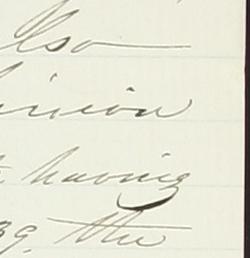 also
inion
having
39. the